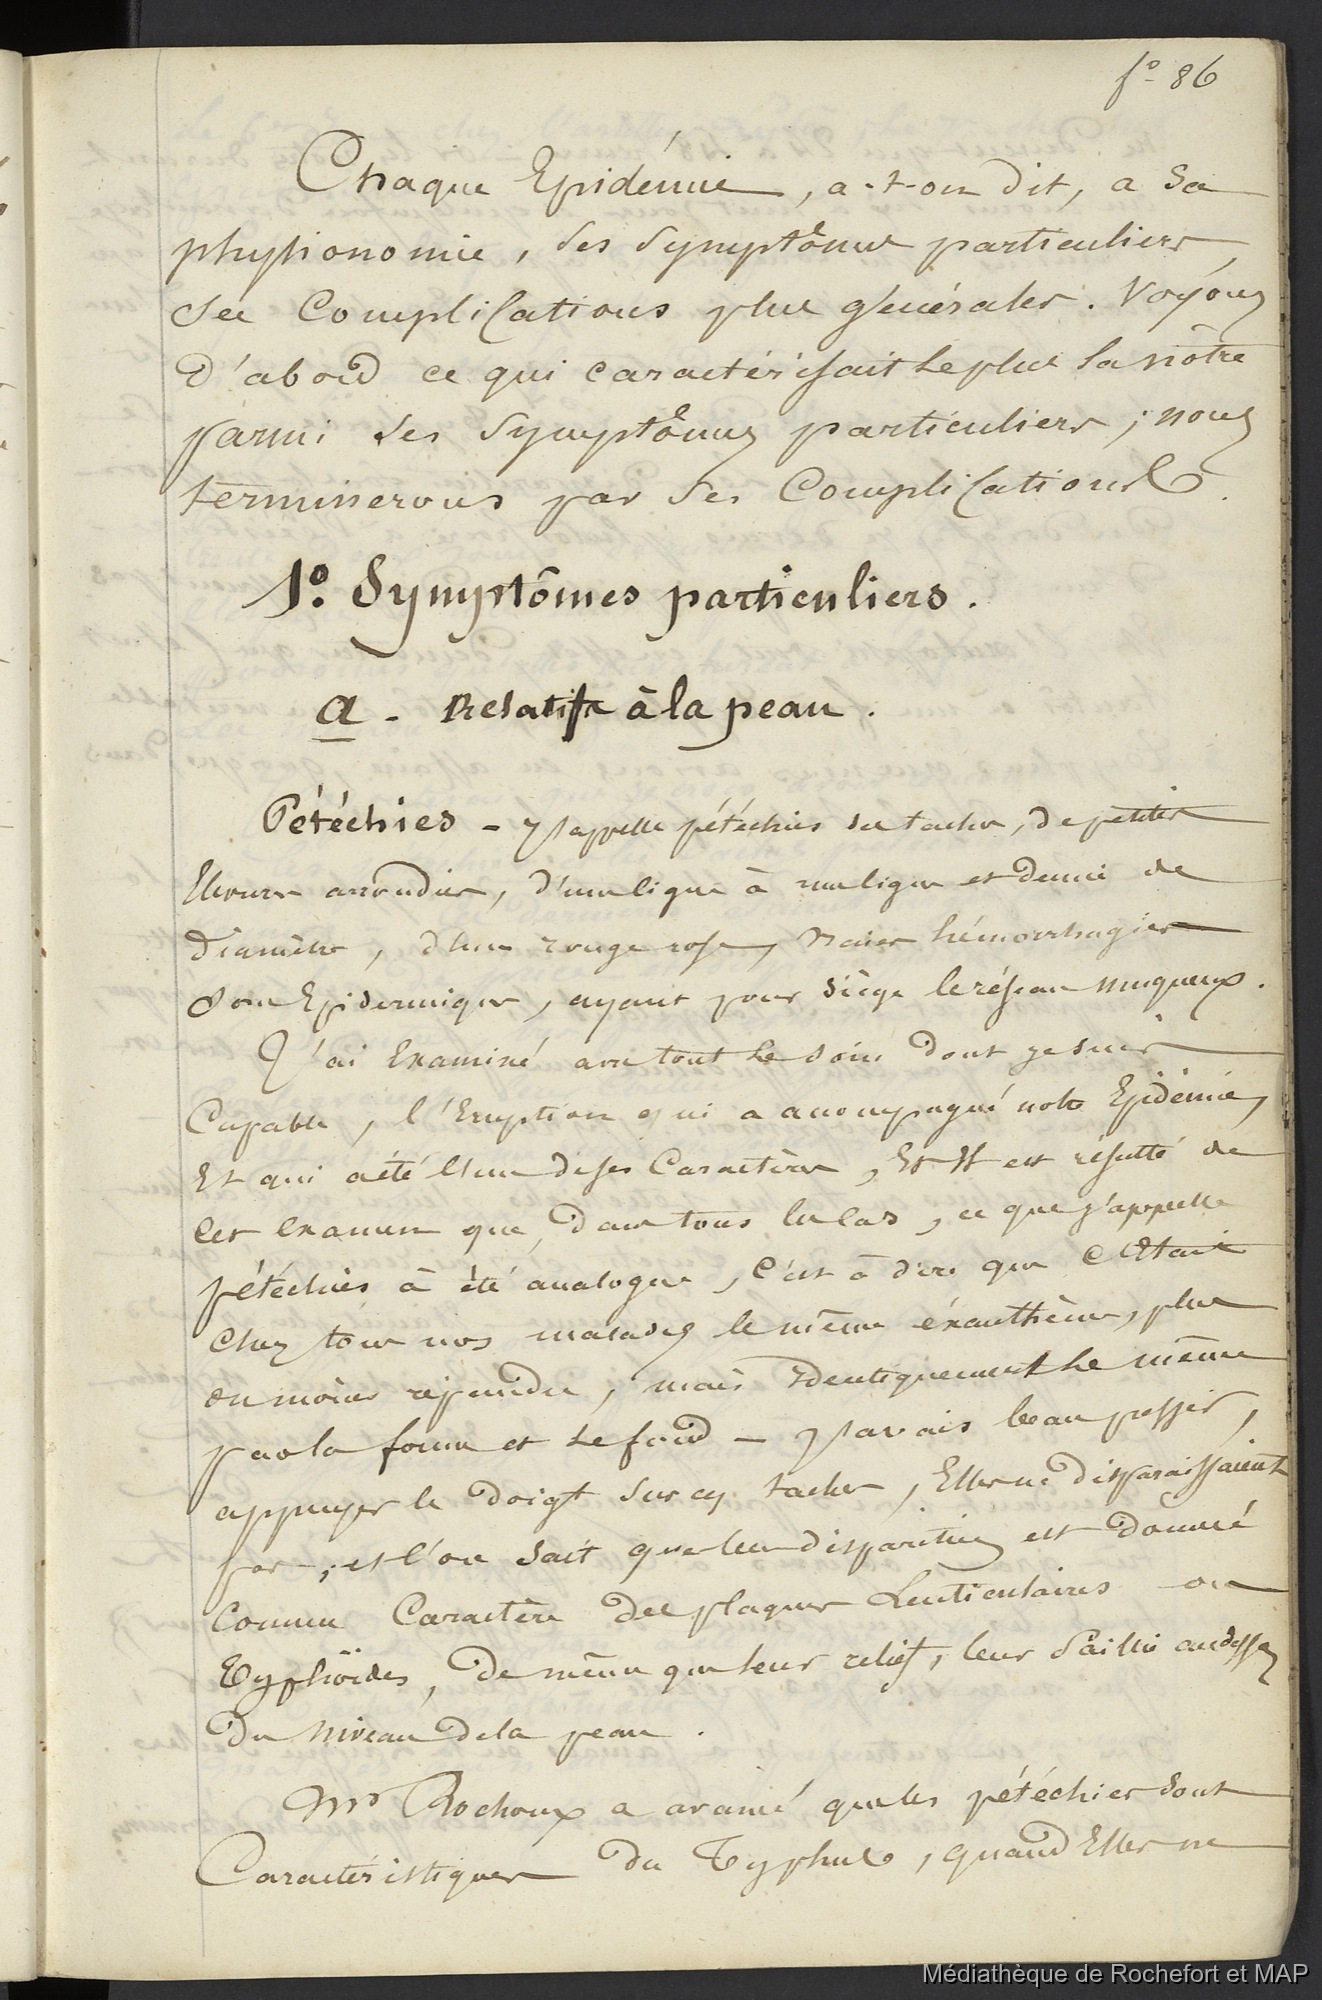 fº 86
Chaque Epidémie, a-t-on dit, a sa
physionomie, ses symptômes particuliers,
ses complications plus générales. Voyons
d'abord ce qui caractérisait le plus la nôtre
parmi ses symptômes particuliers; nous
terminerons par ses complications.
1º. Symptômes particuliers.
a - Relatifs à la peau.
Pétéchies - J'appelle pétéchies des taches, de petites
arrondies, d'une ligne à une ligne et demie de
diamètre, d'un rouge rose, vraies hémorrhagies
sous Epidermiques, ayant pour siège le réseau muqueux.
J'ai Examiné avec tout le soin dont je suis
Capable, l'Eruption qui a accompagné notre Epidémie,
Et qui a été l'un de ses Caractères, Et Il est résulté de
cet Examen que, dans tous les cas, ce que j'appelle
pétéchies à été analogue, c'est à dire que c'Etait
chez tous nos malades le même éxanthème, plus
ou moins répandu, mais identiquement le même
par la forme et le fond - J'avais beau presser,
appuyer le doigt sur ces taches, Elles ne disparaissaient
pas; et l'on sait que leur disparition est donnée
comme Caractère des plaques Lenticulaires ou
Typhoïdes, de même que leur relief, leur saillie au dessus
du niveau de la peau.
Mr Rochoux a avancé que les pétéchies sont
Caractéristiques du Typhus, quand Elles ne
Médiathèque de Rochefort et MAP